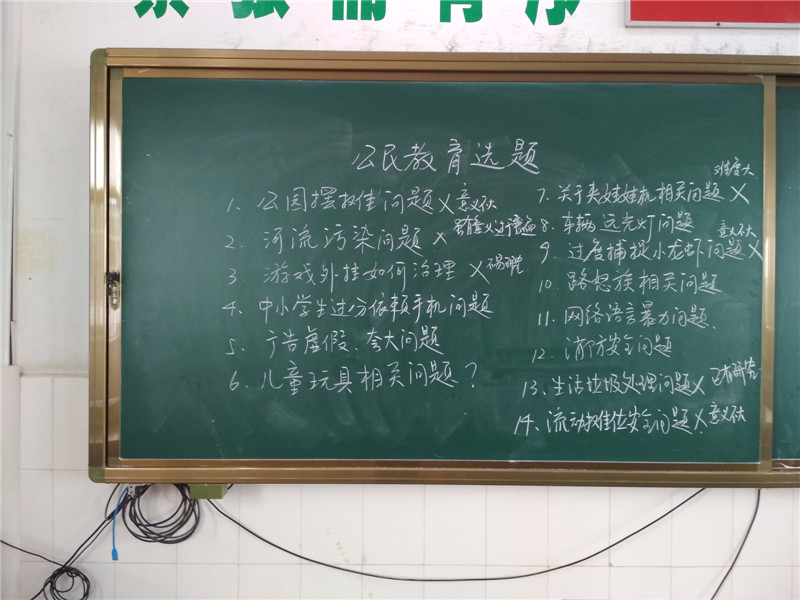 公民教育选题
1、公园摆摊问题 × 意义不大
2、河流污染问题 ×
3、游戏外挂如何治理 × 不易研究
4、中小学生过分依赖手机问题
5、广告虚假、夸大问题
6、儿童玩具相关问题？
7、关于夹娃娃机相关问题 × 难度大
8、车辆远光灯问题
9、过度捕捉小龙虾问题 × 意义不大
10、路怒族相关问题
11、网络语言暴力问题.
12、消防安全问题
13、生活垃圾处理问题 × 已有研究
14、流动摊位安全问题 × 意义不大